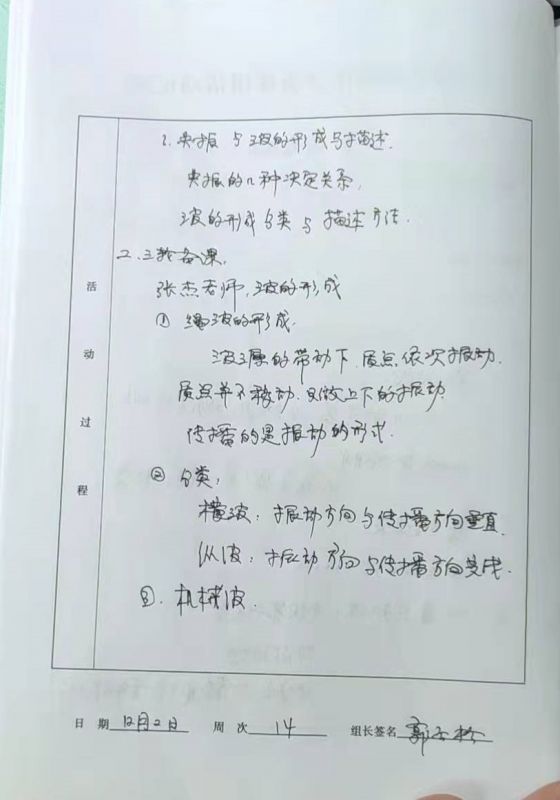 1. 共振与波的形成与描述.
共振的几种决定关系.
波的形成分类与描述方法.
2. 三轮备课.
张杰老师, 波的形成
① 绳波的形成.
波源的带动下, 质点依次振动.
质点并不移动. 只做上下的振动
传播的是振动的形式.
② 分类:
横波: 振动方向与传播方向垂直.
纵波: 振动方向与传播方向共线.
③. 机械波.
活动过程
日 期 12月2日 周 次 14 组长签名 郭